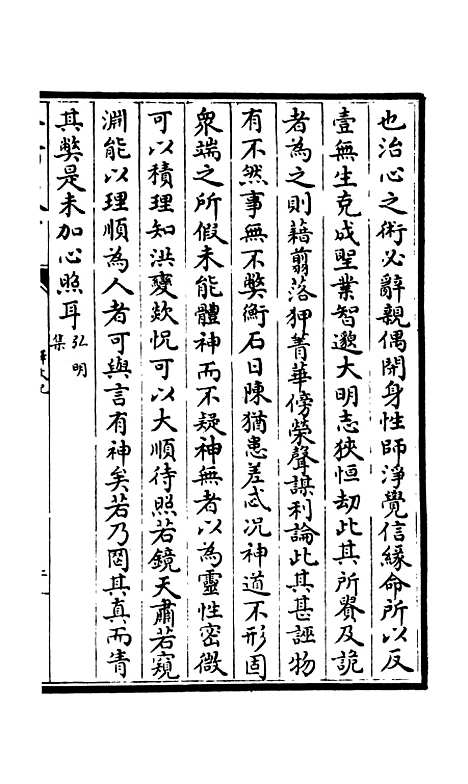 也治心之術必辭親偶閑身性師淨覺信緣命所以反
壹無生克成聖業智邈大明志狹恒劫此其所貴及詭
者為之則藉翦落狎菁華傍榮聲謀利論此其甚誣物
有不然事無不弊衡石日陳猶患差忒况神道不形固
衆端之所假未能體神而不疑神無者以為靈性密微
可以積理知洪變欻怳可以大順待照若鏡天肅若窺
淵能以理順為人者可與言有神矣若乃罔其真而眚
其弊是未加心照耳弘明
集